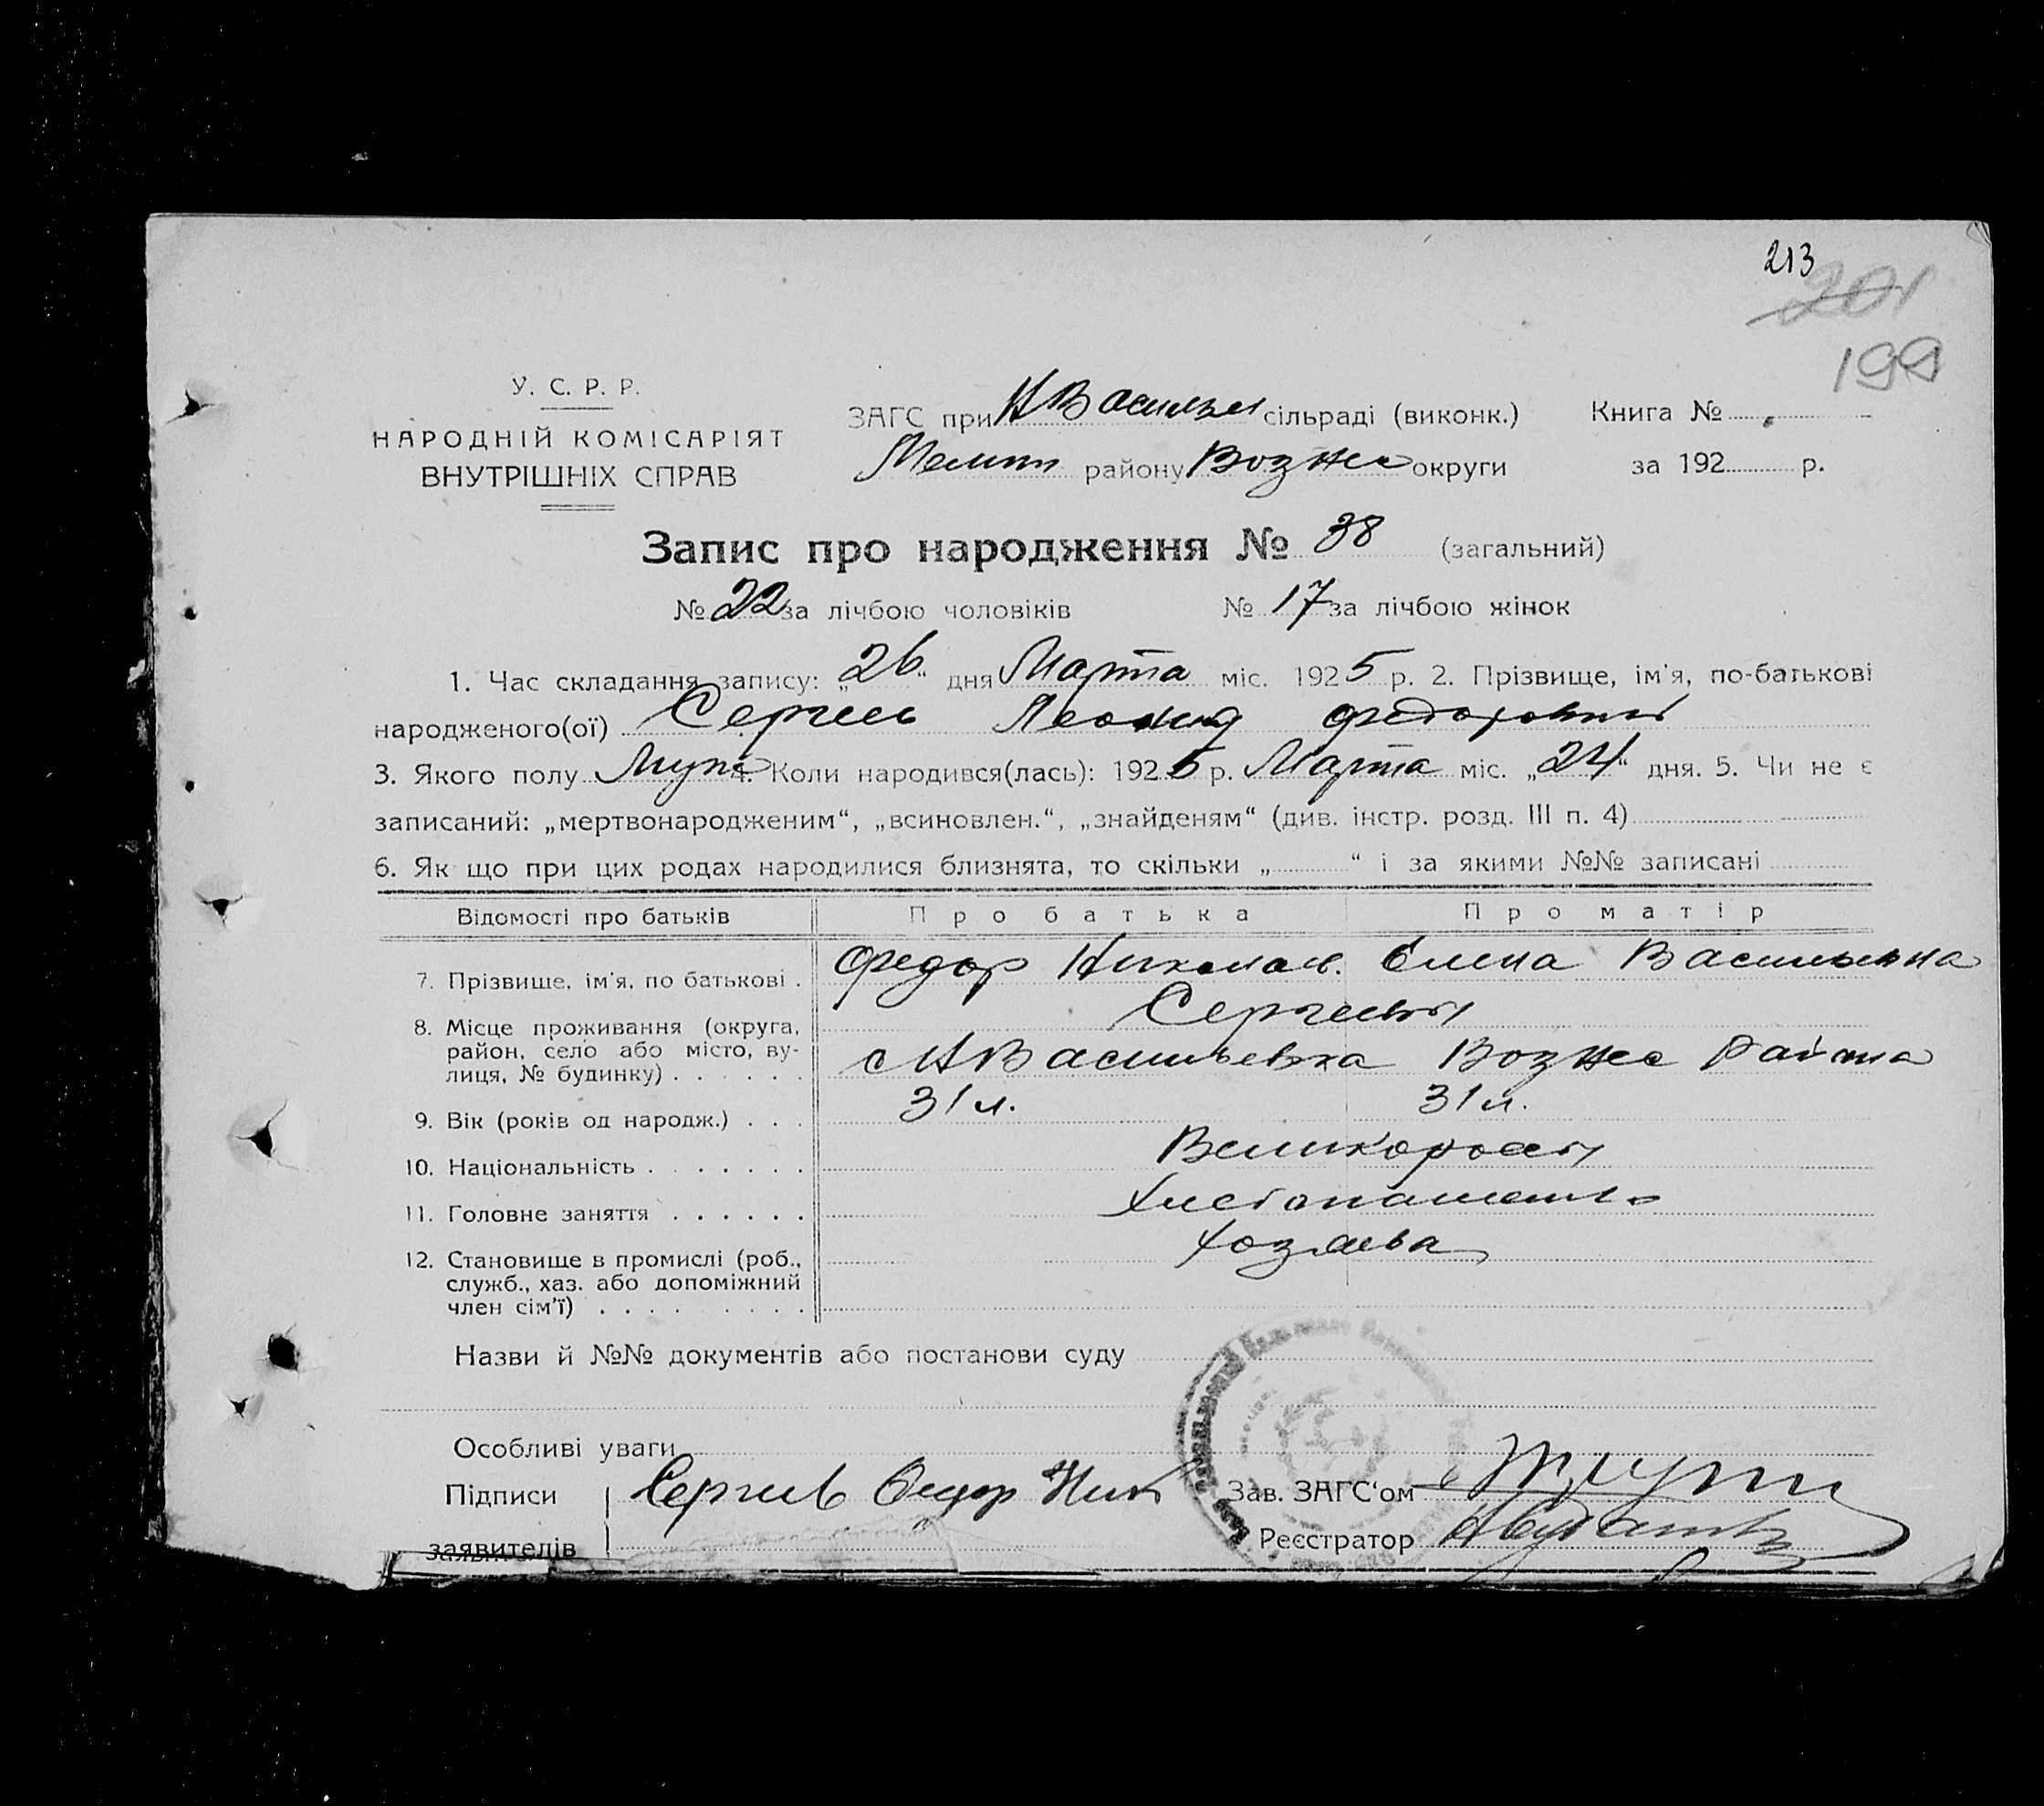 213
201
199
У. С. Р. Р.
НАРОДНІЙ КОМІСАРІЯТ
ВНУТРІШНІХ СПРАВ
ЗАГС при Н Васильев сільраді (виконк.) Книга №
Мелит району Вознес округи за 192 р.
Запис про народження № 38 (загальний)
№ 22 за лічбою чоловіків № 17 за лічбою жінок
1. Час складання запису: „26“ дня Марта міс. 1925 р. 2. Прізвище, ім'я, по-батькові
народженого(ої) Сергеев Леонид Федорович
3. Якого полу Муж 4. Коли народився(лась): 1925 р. Марта міс. „24“ дня. 5. Чи не є
записаний: „мертвонародженим“, „всиновлен.“, „знайденям“ (див. інстр. розд. III п. 4)
6. Як що при цих родах народилися близнята, то скільки „ “ і за якими №№ записані
Відомості про батьків Про батька Про матір
7. Прізвище, ім'я, по батькові . Федор Николаев. Елена Васильевна
Сергеевы
8. Місце проживання (округа,
район, село або місто, ву-
лиця, № будинку) . . . . . . с Н Васильевка Вознес Района
9. Вік (років од народж.) . . . 31 л. 31 л.
10. Національність . . . . . . . Великоросы
11. Головне заняття . . . . . . Хлебопашец
12. Становище в промислі (роб.,
служб., хаз. або допоміжний
член сім'ї) . . . . . . . . Хозяева
Назви й №№ документів або постанови суду
Особливі уваги
Підписи Сергеев Федор Ник Зав. ЗАГС'ом
заявителів Реєстратор